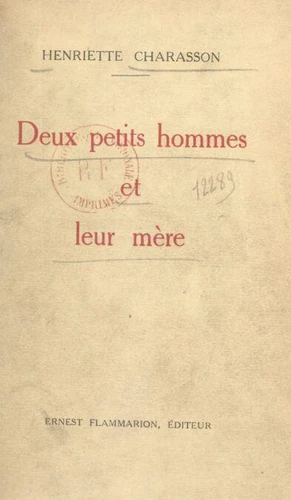 HENRIETTE CHARASSON
Deux petits hommes
et
12289
leur mère
ERNEST FLAMMARION, ÉDITEUR